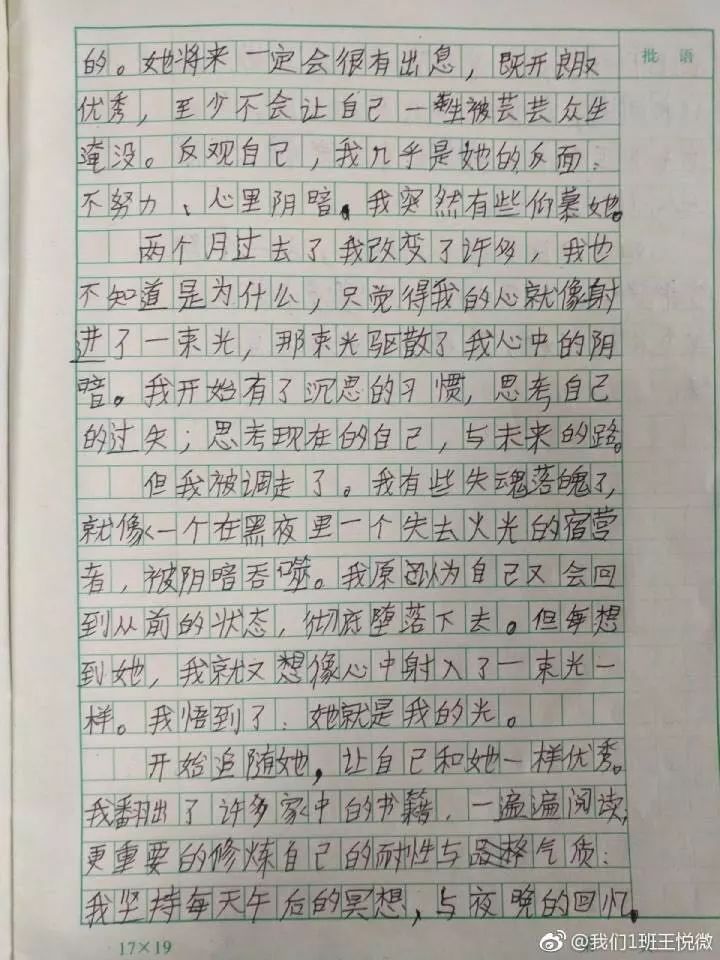 的。她将来一定会很有出息，既开朗又
批语
优秀，至少不会让自己一生被芸芸众生
淹没。反观自己，我几乎是她的反面：
不努力、心里阴暗。我突然有些仰慕她。
两个月过去了我改变了许多，我也
不知道是为什么，只觉得我的心就像射
进了一束光，那束光驱散了我心中的阴
暗。我开始有了沉思的习惯，思考自己
的过失；思考现在的自己，与未来的路。
但我被调走了。我有些失魂落魄了，
就像一个在黑夜里一个失去火光的宿营
者，被阴暗吞噬。我原以为自己又会回
到从前的状态，彻底堕落下去。但每想
到她，我就又想像心中射入了一束光一
样。我悟到了：她就是我的光。
开始追随她，让自己和她一样优秀。
我翻出了许多家中的书籍，一遍遍阅读，
更重要的修炼自己的耐性与品格气质：
我坚持每天午后的冥想，与夜晚的回忆。
17×19
@我们1班王悦微